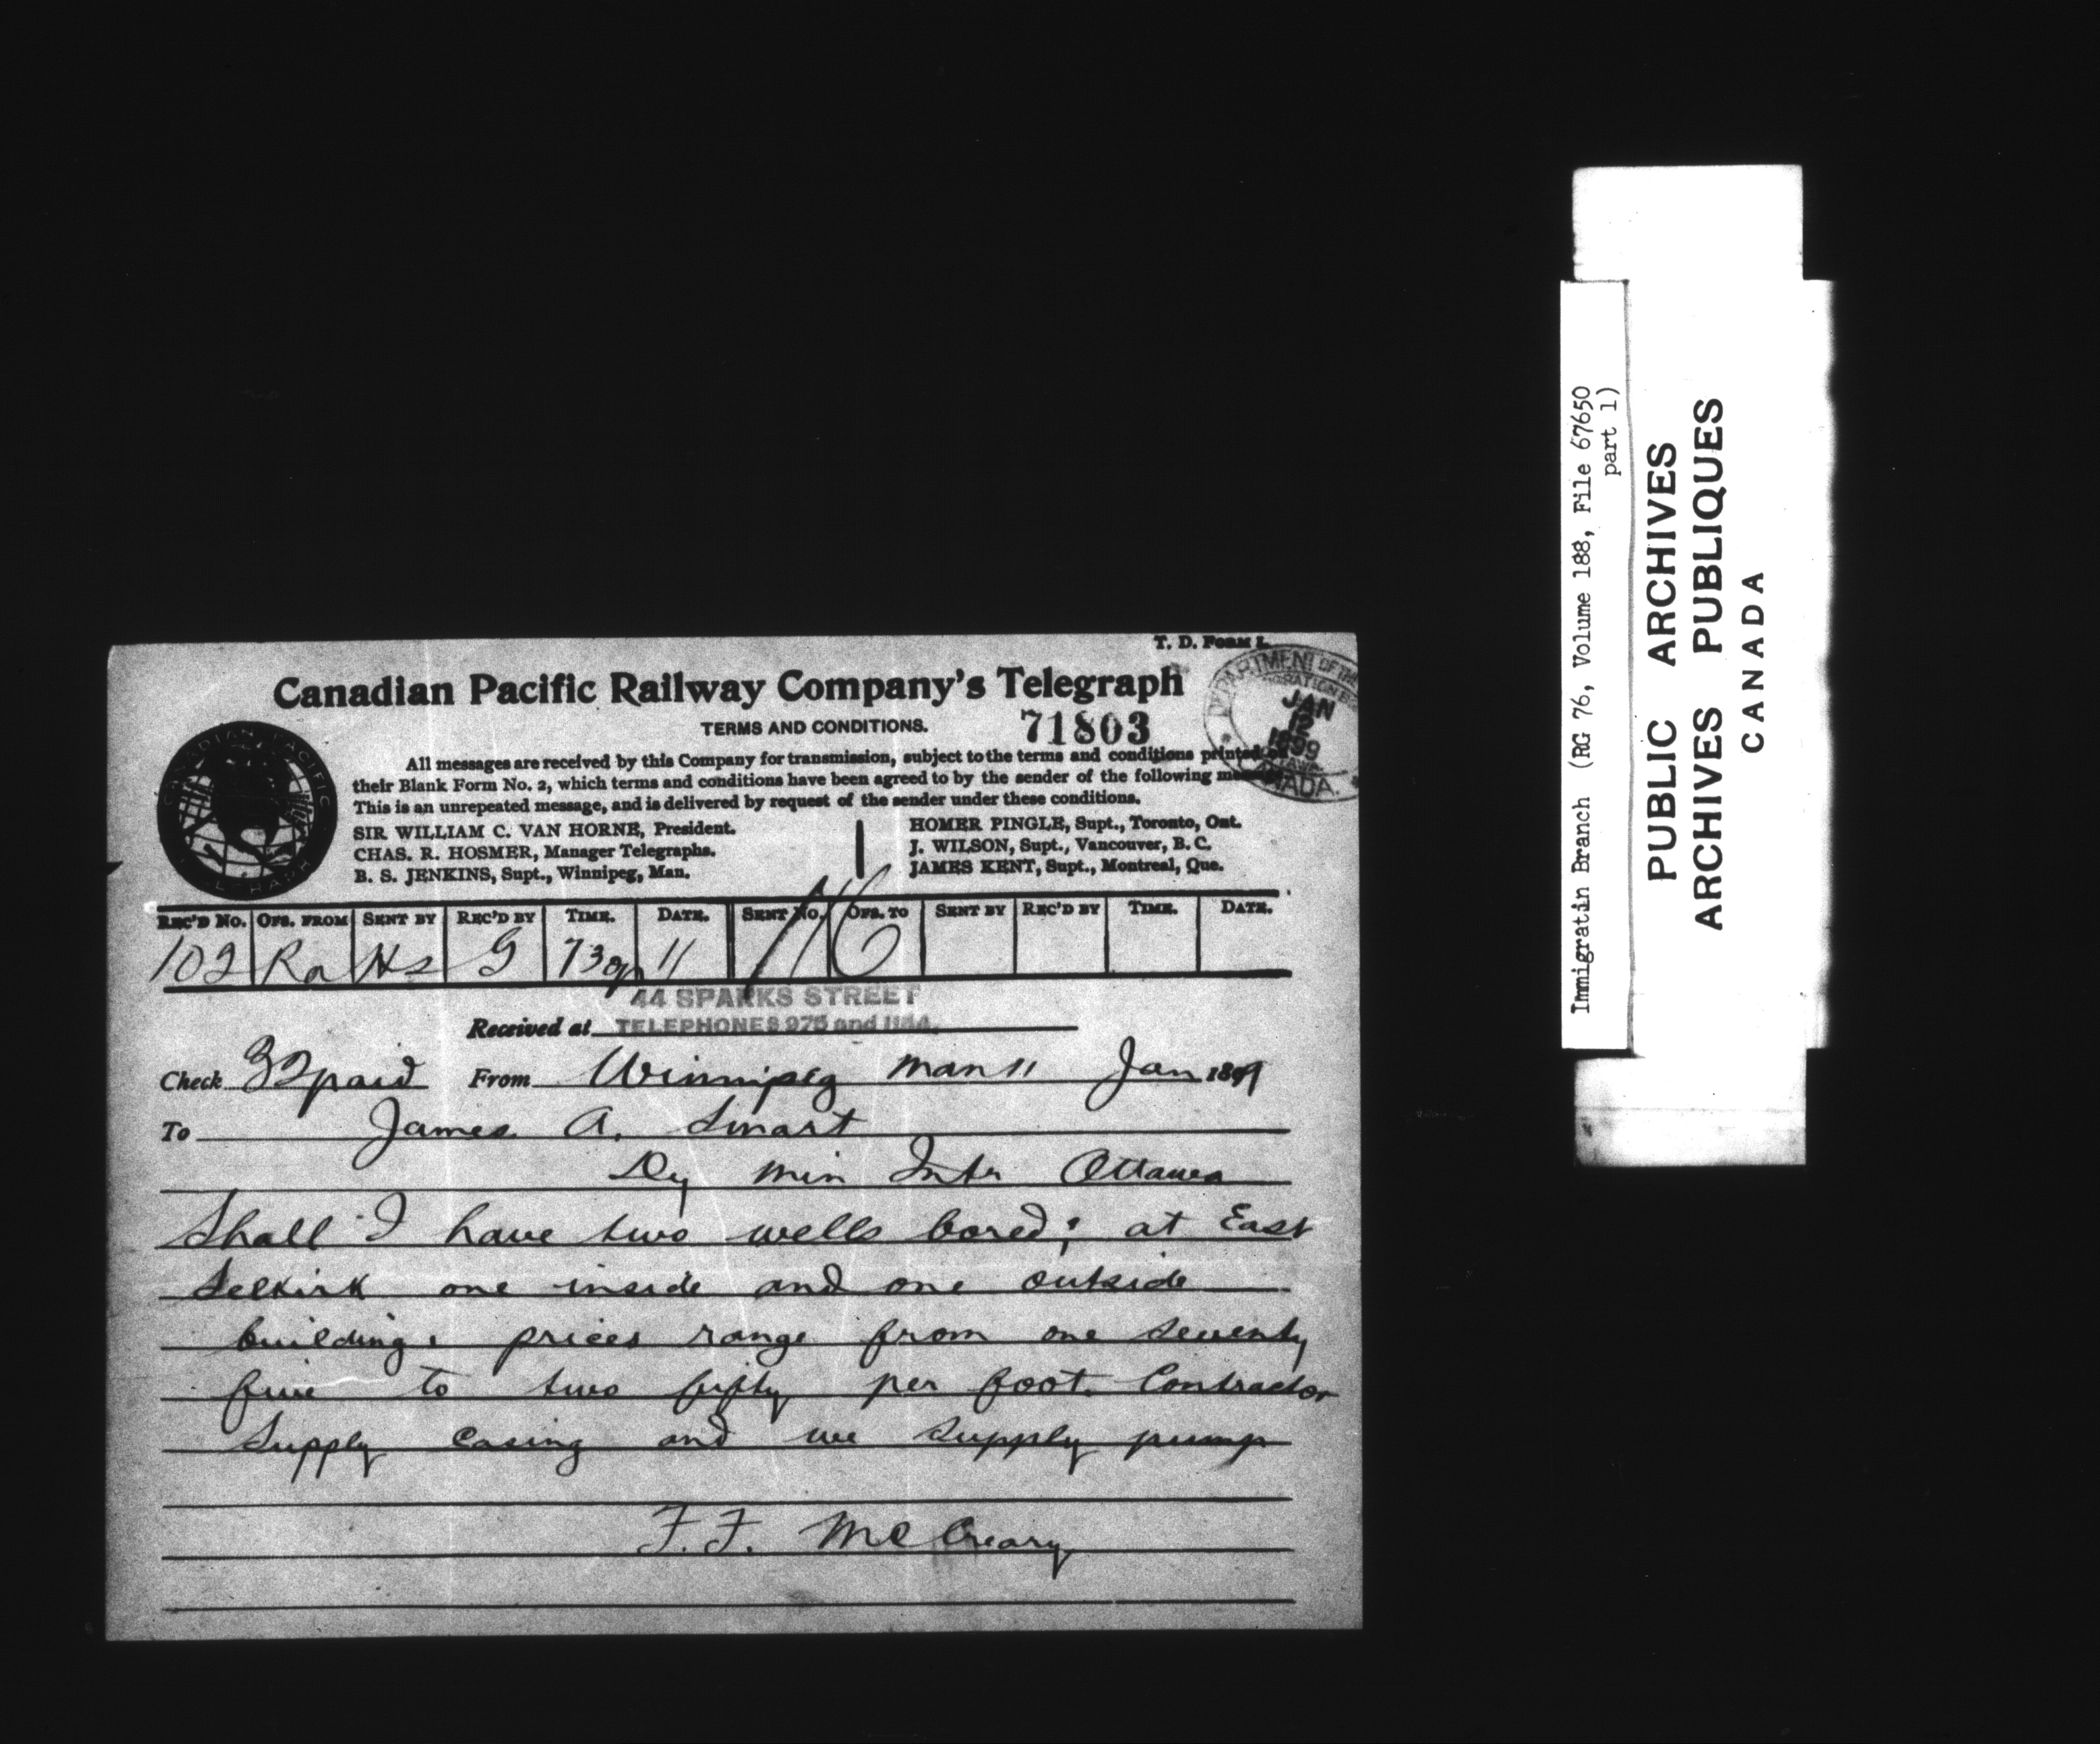 T. D. Form 1.
Canadian Pacific Railway Company's Telegraph
TERMS AND CONDITIONS.
71803
DEPARTMENT OF THE
JAN
12
1899
OTTAWA
CANADA.
All messages are received by this Company for transmission, subject to the terms and conditions printed on
their Blank Form No. 2, which terms and conditions have been agreed to by the sender of the following message.
This is an unrepeated message, and is delivered by request of the sender under these conditions.
SIR WILLIAM C. VAN HORNE, President.
CHAS. R. HOSMER, Manager Telegraphs.
B. S. JENKINS, Supt., Winnipeg, Man.
HOMER PINGLE, Supt., Toronto, Ont.
J. WILSON, Supt., Vancouver, B. C.
JAMES KENT, Supt., Montreal, Que.
CANADIAN PACIFIC
TELEGRAPH
REC'D No. OFS. FROM SENT BY REC'D BY TIME. DATE. SENT No. OFS. TO SENT BY REC'D BY TIME. DATE.
102 Ra Hs G 730p 11
44 SPARKS STREET
Received at TELEPHONES 975 and 1144.
Check 32 paid From Winnipeg Man 11 Jan 1899
To James A. Smart
Dy Min Intr Ottawa
Shall I have two wells bored; at East
Selkirk one inside and one outside
building. prices range from one seventy
five to two fifty per foot. Contractor
supply casing and we supply pump
F.F. McCreary
Immigratin Branch (RG 76, Volume 188, File 67650
part 1)
PUBLIC ARCHIVES
ARCHIVES PUBLIQUES
CANADA